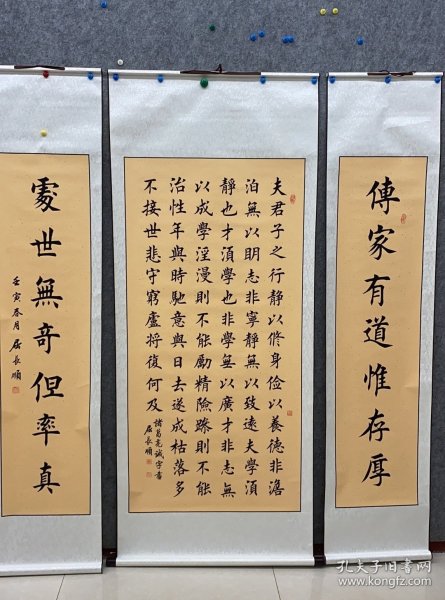 傳家有道惟存厚
夫君子之行靜以修身儉以養德非澹
泊無以明志非寧靜無以致遠夫學須
靜也才須學也非學無以廣才非志無
以成學淫漫則不能勵精險躁則不能
治性年與時馳意與日去遂成枯落多
不接世悲守窮廬将復何及
諸葛亮誡字書
居長順
處世無奇但率真
壬寅春月居長順
孔夫子旧书网
www.kongfz.com